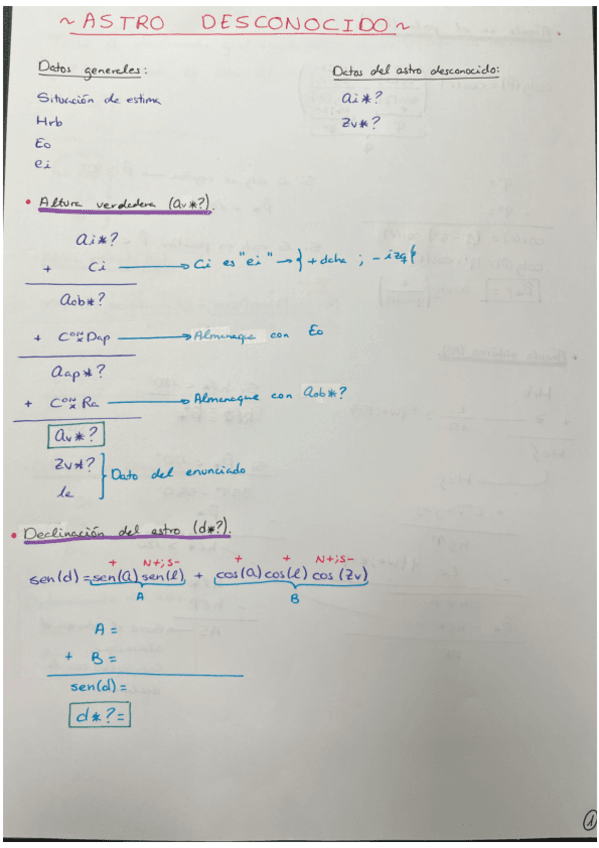 ~ ASTRO DESCONOCIDO ~
Datos generales:
Situación de estima
Hrb
Eo
ei
Datos del astro desconocido:
ai*?
Zv*?
• Altura verdadera (av*?).
ai*?
+ Ci → Ci es "ei" → { + dcha ; - izq {
aob*?
+ Cᵒⁿₓ Dap → Almanaque con Eo
aap*?
+ Cᵒⁿₓ Ra → Almanaque con aob*?
av*?
Zv*? } Dato del enunciado
le
• Declinación del astro (d*?).
+ N+;S- + + N+;S-
sen(d) = sen(a) sen(l) + cos(a) cos(l) cos(Zv)
A B
A =
+ B =
sen(d) =
d*? =
1